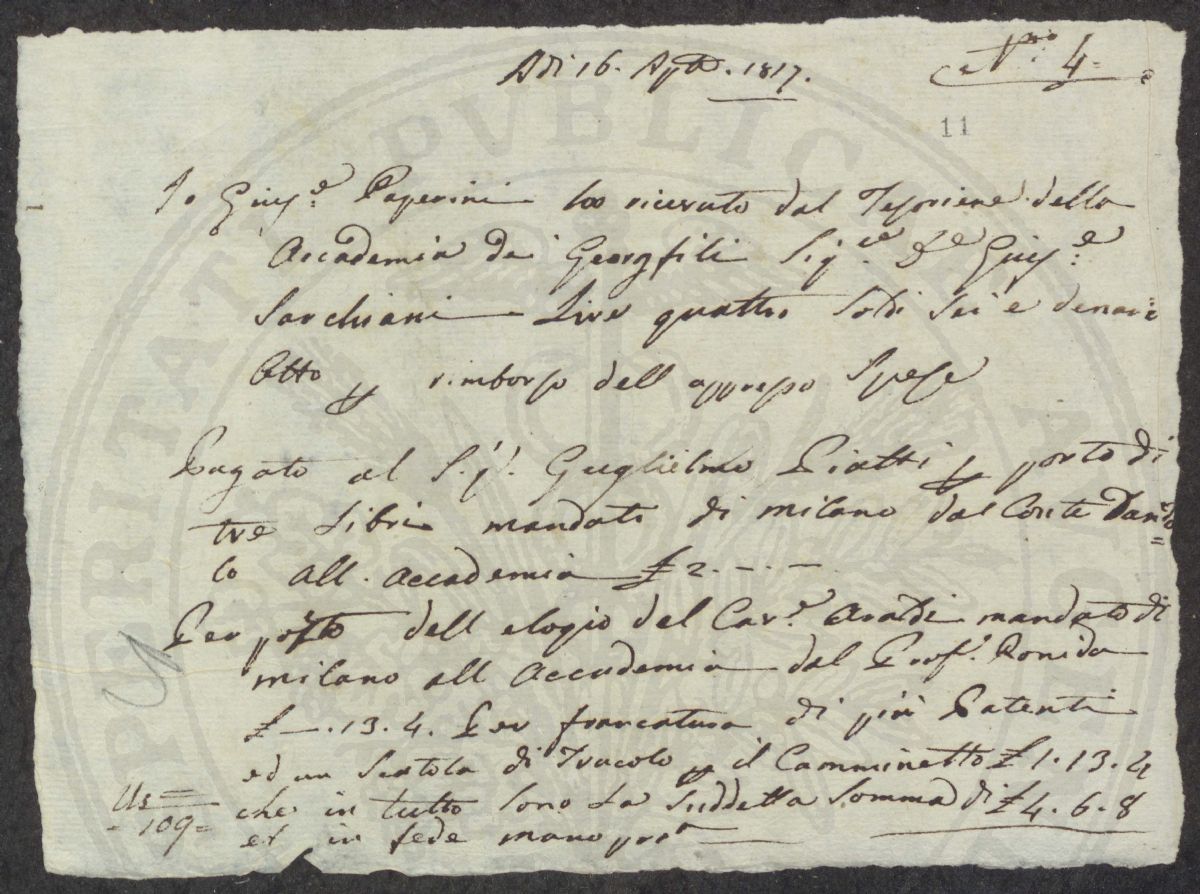 Adi 16. Ag.to 1817.
N.ro 4=
11
Io Gius.e Paperini ho ricevuto dal Tesoriere della
Accademia dei Georgofili Sig.re D.re Gius.e
Sarchiani Lire quattro Soldi Sei e denari
Otto p rimborso dell appresso Spese
Pagato al Sig. Guglielmo Piatti p porto di
tre Libri mandati di milano dal Conte Dan=
lo all. accademia £ 2. -. -
Per posto dell elogio del Cav.e mandato di
milano all Accademia dal Prof.
£ -. 13. 4. Per francatura di più Patenti
ed un Scatola di p il Camminetto £ 1. 13. 4
che in tutto Sono La Suddetta Somma di £ 4. 6. 8
et in fede mano pro.a
Us=
- 109=